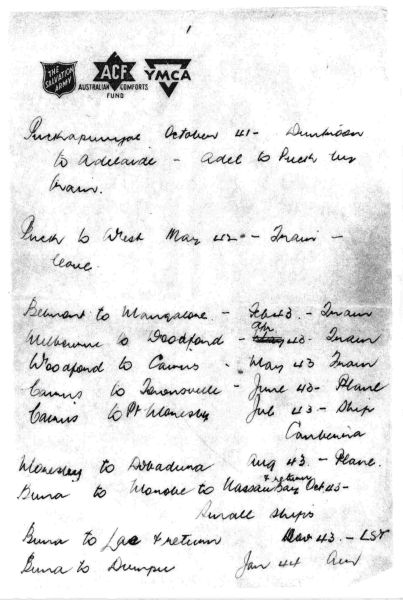 1
THE SALVATION ARMY
ACF
AUSTRALIAN COMFORTS FUND
YMCA
Puckapunyal October 41 - Dunkoon
to Adelaide - Adel to Puck by
train.
Puck to West May 42 - Train -
leave.
Belmont to Mangalore - Feb 43. - Train
Melbourne to Woodford - Apr 43 - Train
Woodford to Cairns - May 43 Train
Cairns to Townsville - June 43 - Plane
Cairns to Pt Moresby Jul 43 - Ship
Canberra
Moresby to Dobaduna Aug 43. - Plane.
Buna to Morobe to Nassau Bay & return Oct 43 -
Small ships
Buna to Lae & return Nov 43. - LST
Buna to Dumpu Jan 44